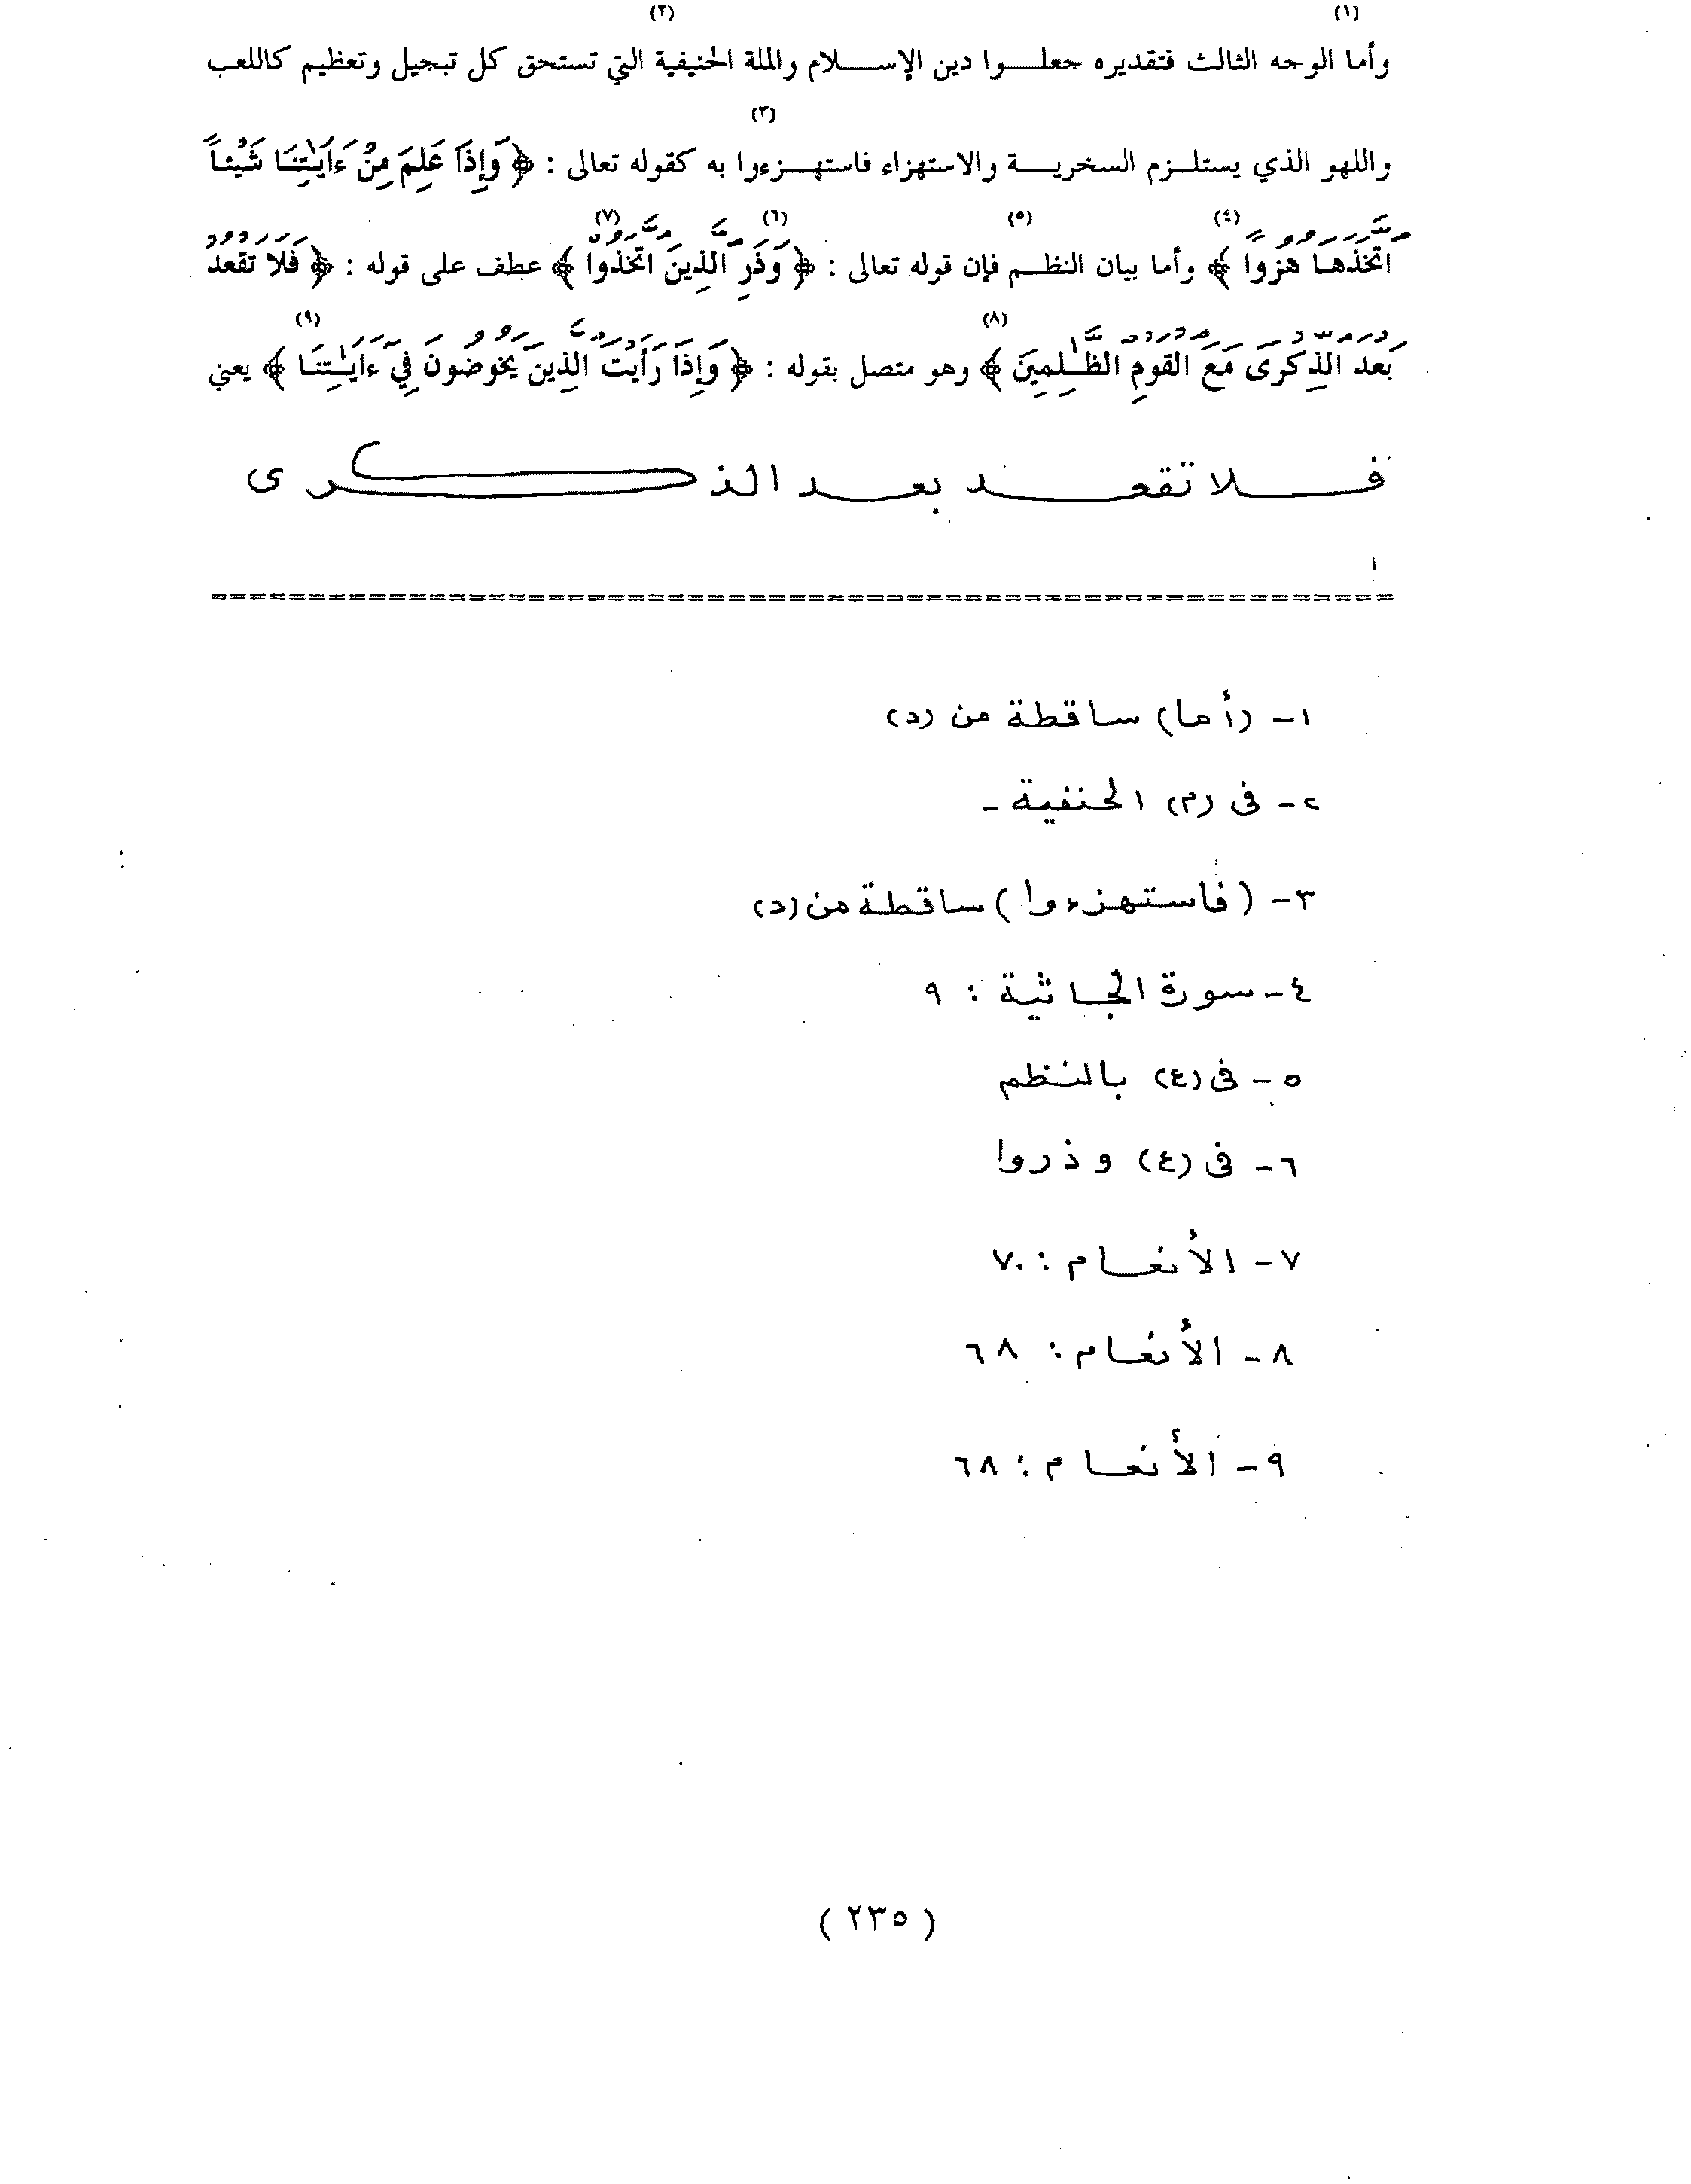 (١) (٢)
وأما الوجه الثالث فتقديره جعلوا دين الإسلام والملة الحنيفية التي تستحق كل تبجيل وتعظيم كاللعب
(٣)
واللهو الذي يستلزم السخرية والاستهزاء فاستهزءوا به كقوله تعالى : ﴿ وَإِذَا عَلِمَ مِنْ ءَايَٰتِنَا شَيْئاً
(٤) (٥) (٦) (٧)
اتَّخَذَهَا هُزُواً ﴾ وأما بيان النظم فإن قوله تعالى : ﴿ وَذَرِ الَّذِينَ اتَّخَذُوا ﴾ عطف على قوله : ﴿ فَلَا تَقْعُدْ
(٨) (٩)
بَعْدَ الذِّكْرَى مَعَ الْقَوْمِ الظَّٰلِمِينَ ﴾ وهو متصل بقوله : ﴿ وَإِذَا رَأَيْتَ الَّذِينَ يَخُوضُونَ فِي ءَايَٰتِنَا ﴾ يعني
فلا تقعد بعد الذكرى
١- (أما) ساقطة من (د)
٢- فى (م) الحنفية -
٣- (فاستهزءوا) ساقطة من (د)
٤- سورة الجاثية : ٩
٥- فى (ع) بالنظم
٦- فى (ع) وذروا
٧- الأنعام : ٧٠
٨- الأنعام : ٦٨
٩- الأنعام : ٦٨
( ٢٣٥ )